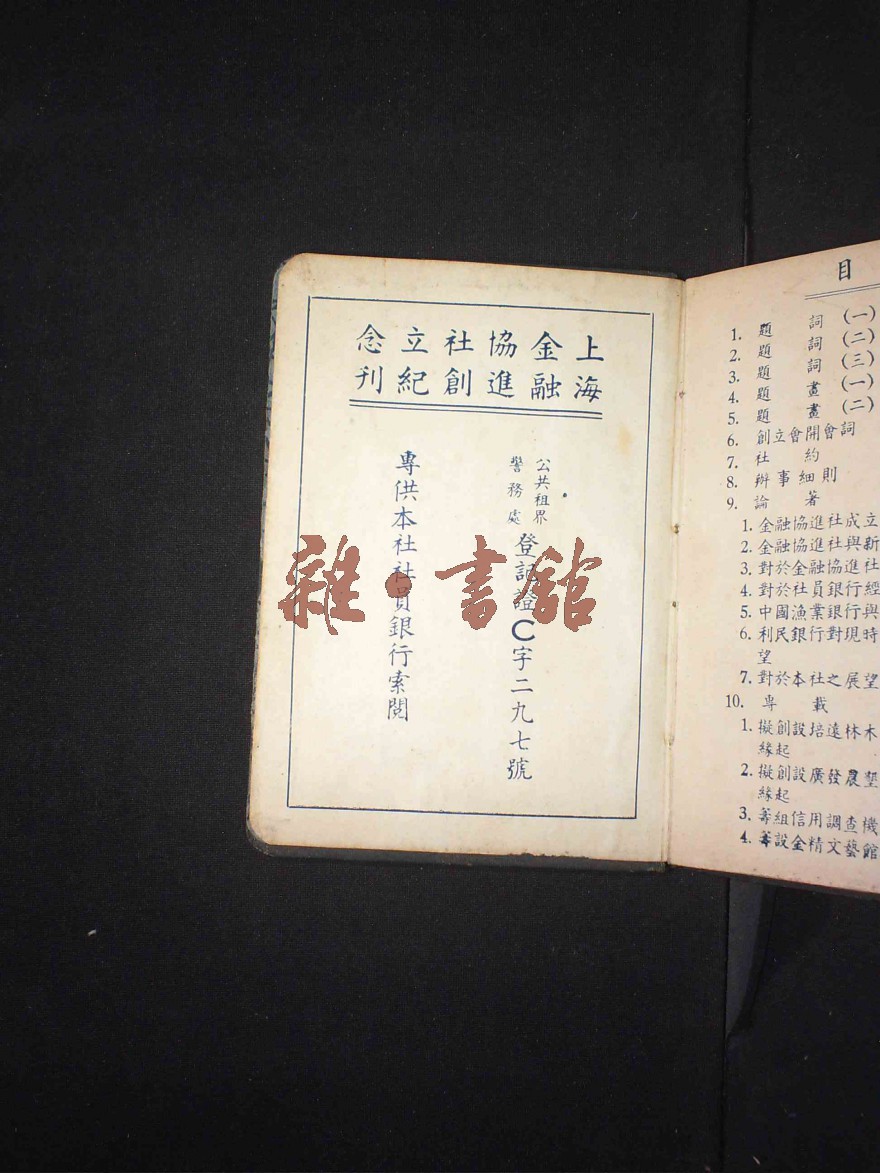 上海金融協進社創立紀念刊
公共租界
警務處
登記證C字二九七號
專供本社社員銀行索閱
雜·書館
目
1. 題詞(一)
2. 題詞(二)
3. 題詞(三)
4. 題畫(一)
5. 題畫(二)
6. 創立會開會詞
7. 社約
8. 辦事細則
9. 論著
1. 金融協進社成立
2. 金融協進社與新
3. 對於金融協進社
4. 對於社員銀行經
5. 中國漁業銀行與
6. 利民銀行對現時
望
7. 對於本社之展望
10. 專載
1. 擬創設培遠林木
緣起
2. 擬創設廣發農墾
緣起
3. 籌組信用調查機
4. 籌設金精文藝館